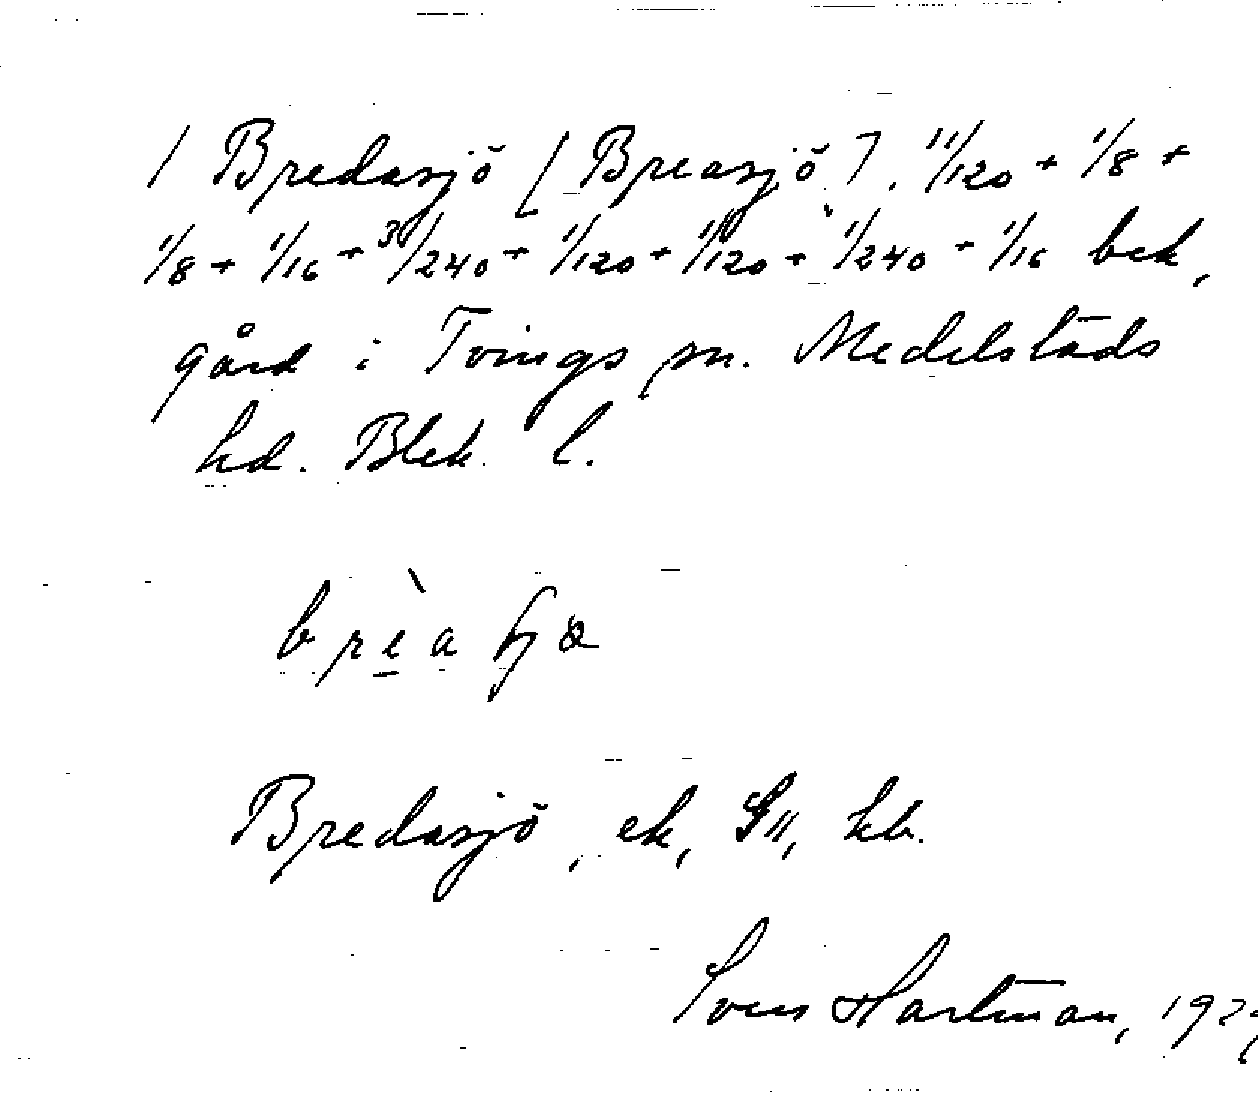 1 Bredasjö [Breasjö]. 11/120 + 1/8 +
1/8 + 1/16 + 3/240 + 1/120 + 1/120 + 1/240 + 1/16 bek,
gård i Tvings sn. Medelstads
hd. Blek. l.
Bredasjö, ek, hb.
Sven Hartman,